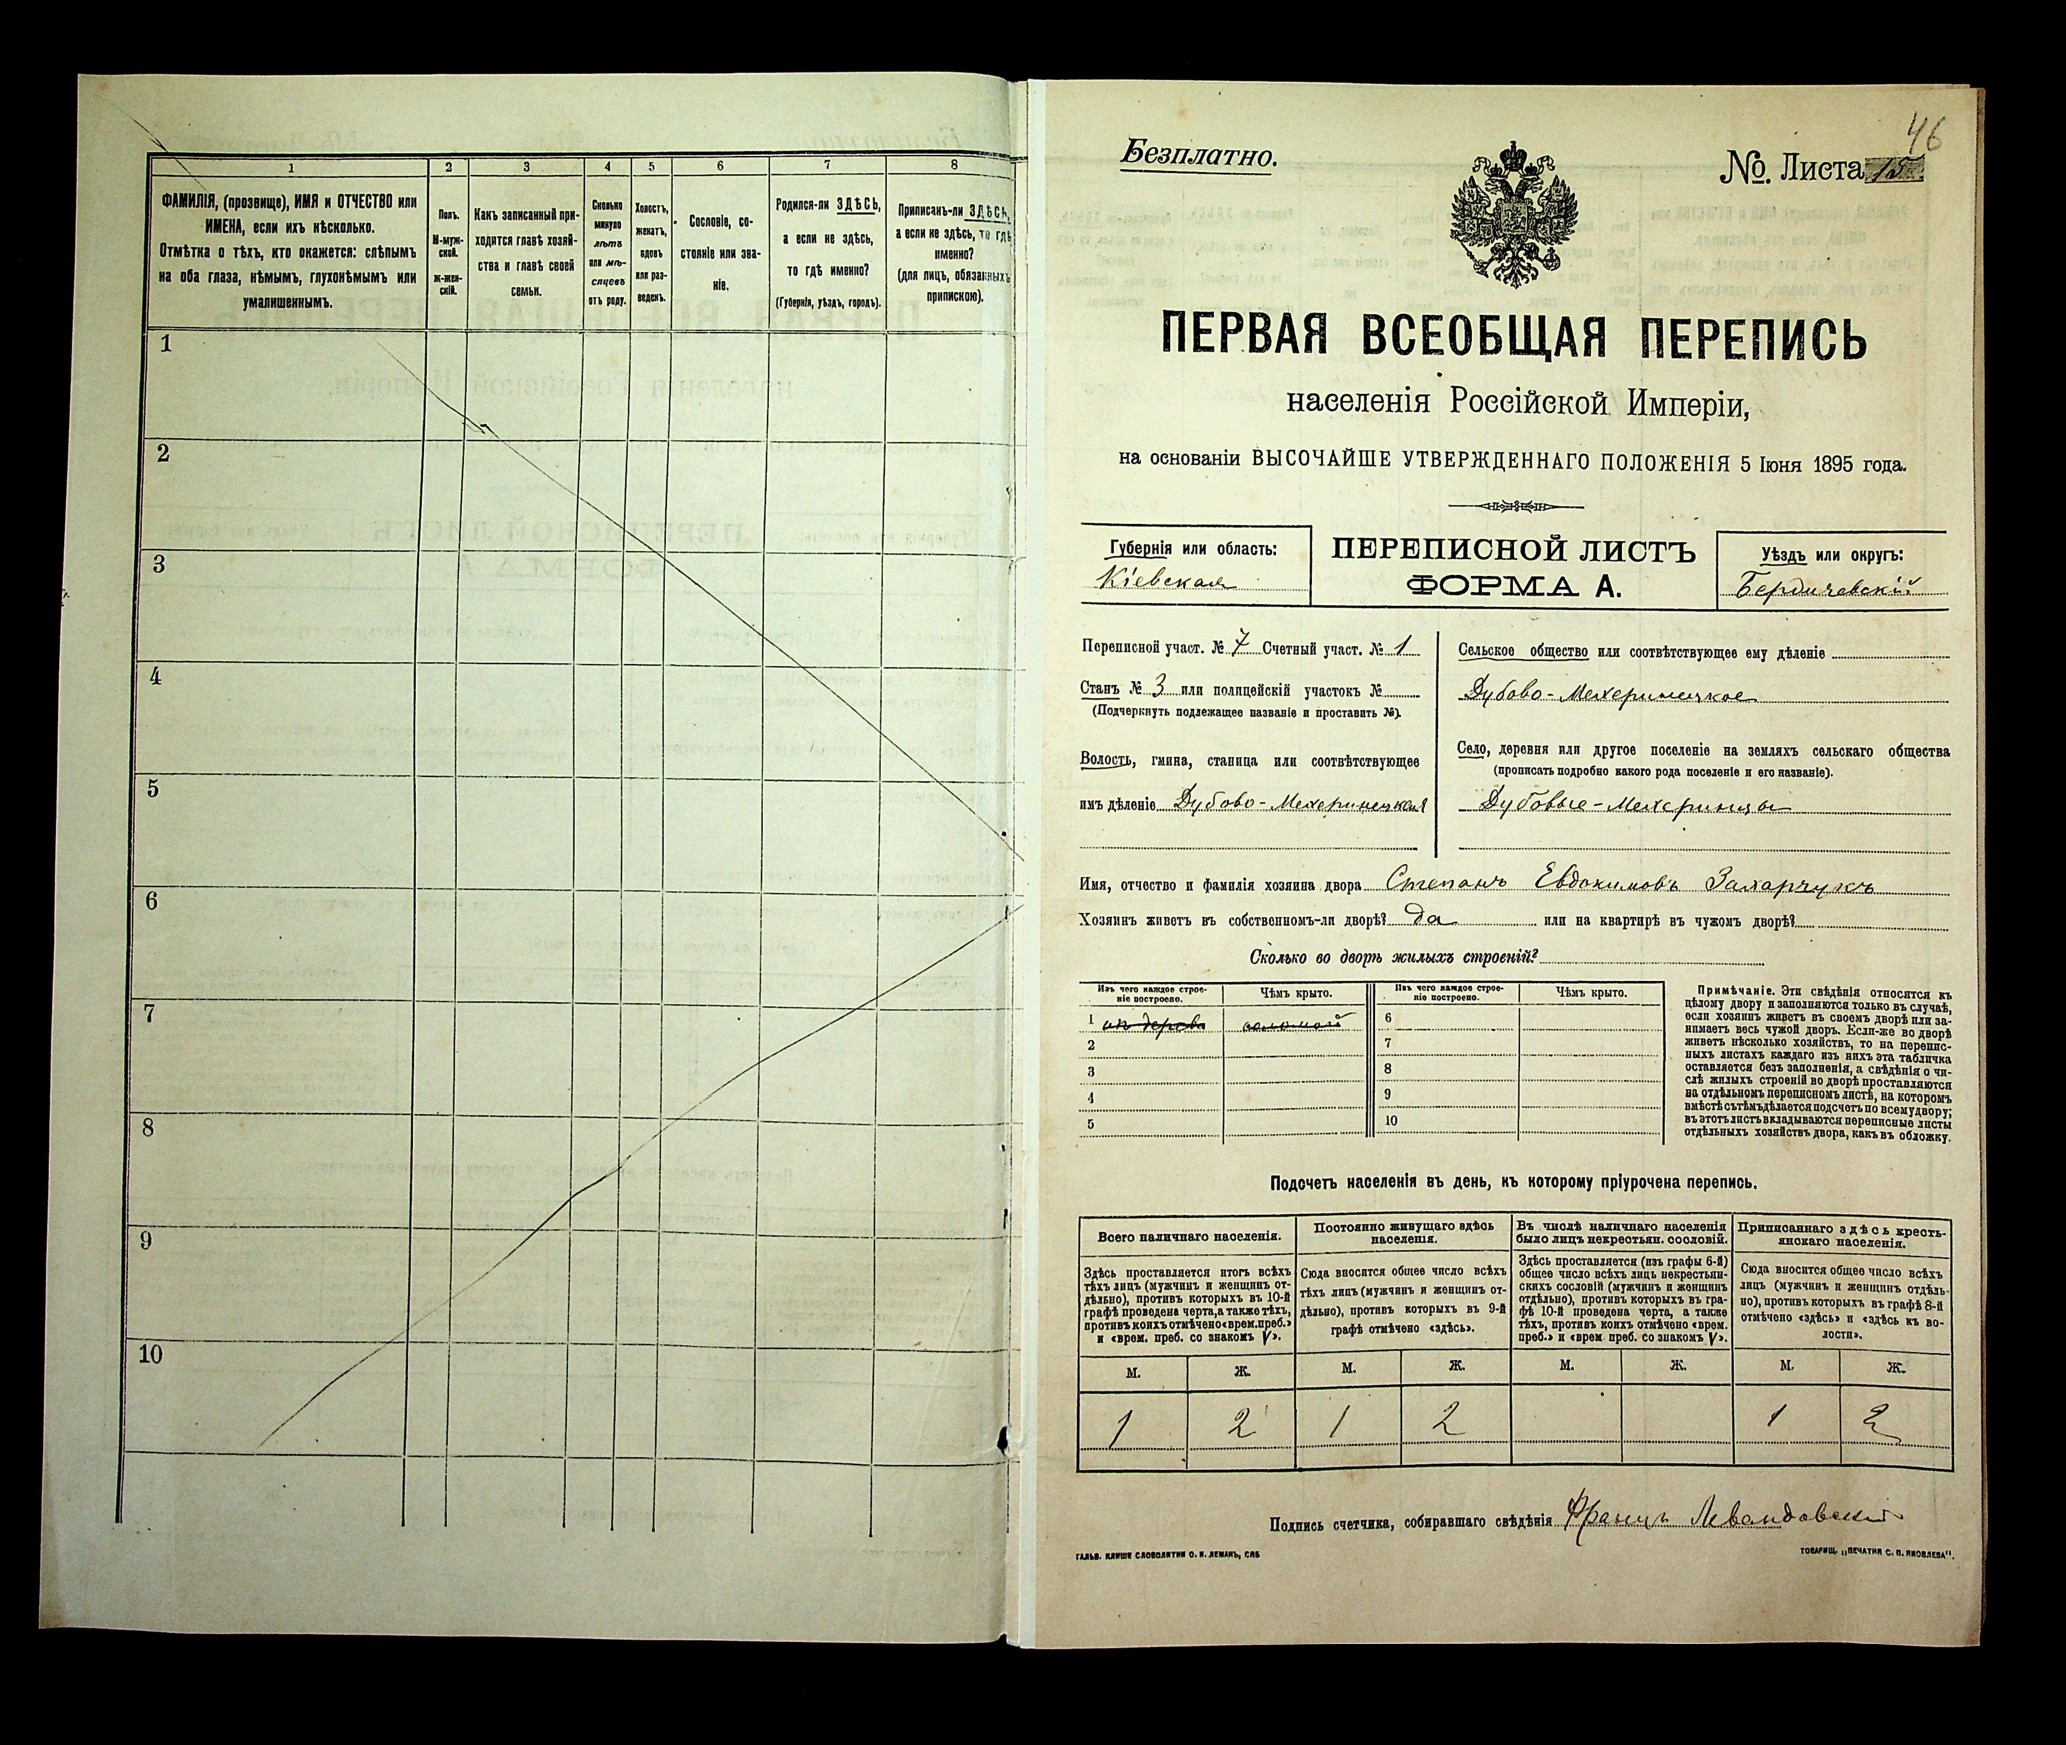 1
2
3
4
5
6
7
8
ФАМИЛІЯ, (прозвище), ИМЯ и ОТЧЕСТВО или
ИМЕНА, если ихъ нѣсколько.
Отмѣтка о тѣхъ, кто окажется: слѣпымъ
на оба глаза, нѣмымъ, глухонѣмымъ или
умалишеннымъ.
Полъ.
М-муж-
ской.
Ж-жен-
скій.
Какъ записанный при-
ходится главѣ хозяй-
ства и главѣ своей
семьи.
Сколько
минуло
лѣтъ
или мѣ-
сяцевъ
отъ роду.
Холостъ,
женатъ,
вдовъ
или раз-
веденъ.
Сословіе, со-
стояніе или зва-
ніе.
Родился-ли ЗДѢСЬ,
а если не здѣсь,
то гдѣ именно?
(Губернія, уѣздъ, городъ).
Приписанъ-ли ЗДѢСЬ,
а если не здѣсь, то гдѣ
именно?
(для лицъ, обязанныхъ
припискою).
1
2
3
4
5
6
7
8
9
10
46
Безплатно.
№ Листа 15
ПЕРВАЯ ВСЕОБЩАЯ ПЕРЕПИСЬ
населенія Россійской Имперіи,
на основаніи ВЫСОЧАЙШЕ УТВЕРЖДЕННАГО ПОЛОЖЕНІЯ 5 Іюня 1895 года.
Губернія или область:
Кіевская
ПЕРЕПИСНОЙ ЛИСТЪ
ФОРМА А.
Уѣздъ или округъ:
Бердичевскій
Переписной участ. № 7 Счетный участ. № 1
Станъ № 3 или полицейскій участокъ №
(Подчеркнуть подлежащее названіе и проставить №).
Волость, гмина, станица или соотвѣтствующее
имъ дѣленіе Дубово-Мехеринецкая
Сельское общество или соотвѣтствующее ему дѣленіе
Дубово-Мехеринецкое
Село, деревня или другое поселеніе на земляхъ сельскаго общества
(прописать подробно какого рода поселеніе и его названіе).
Дубовые-Мехеринцы
Имя, отчество и фамилія хозяина двора Степанъ Евдокимовъ Захарчукъ
Хозяинъ живетъ въ собственномъ-ли дворѣ? да или на квартирѣ въ чужомъ дворѣ?
Сколько во дворѣ жилыхъ строеній?
Изъ чего каждое строе-
ніе построено.
Чѣмъ крыто.
Изъ чего каждое строе-
ніе построено.
Чѣмъ крыто.
1 изъ дерева соломой
2
3
4
5
6
7
8
9
10
Примѣчаніе. Эти свѣдѣнія относятся къ
цѣлому двору и заполняются только въ случаѣ,
если хозяинъ живетъ въ своемъ дворѣ или за-
нимаетъ весь чужой дворъ. Если-же во дворѣ
живетъ нѣсколько хозяйствъ, то на перепис-
ныхъ листахъ каждаго изъ нихъ эта табличка
оставляется безъ заполненія, а свѣдѣнія о чи-
слѣ жилыхъ строеній во дворѣ проставляются
на отдѣльномъ переписномъ листѣ, на которомъ
вмѣстѣ съ тѣмъ дѣлается подсчетъ по всему двору;
въ этотъ листъ вкладываются переписные листы
отдѣльныхъ хозяйствъ двора, какъ въ обложку.
Подсчетъ населенія въ день, къ которому пріурочена перепись.
Всего наличнаго населенія.
Здѣсь проставляется итогъ всѣхъ
тѣхъ лицъ (мужчинъ и женщинъ от-
дѣльно), противъ которыхъ въ 10-й
графѣ проведена черта, а также тѣхъ,
противъ коихъ отмѣчено «врем. преб.»
и «врем. преб. со знакомъ V».
Постоянно живущаго здѣсь
населенія.
Сюда вносится общее число всѣхъ
тѣхъ лицъ (мужчинъ и женщинъ от-
дѣльно), противъ которыхъ въ 9-й
графѣ отмѣчено «здѣсь».
Въ числѣ наличнаго населенія
было лицъ некрестьян. сословій.
Здѣсь проставляется (изъ графы 6-й)
общее число всѣхъ лицъ некрестьян-
скихъ сословій (мужчинъ и женщинъ
отдѣльно), противъ которыхъ въ гра-
фѣ 10-й проведена черта, а также
тѣхъ, противъ коихъ отмѣчено «врем.
преб.» и «врем преб. со знакомъ V».
Приписаннаго здѣсь кресть-
янскаго населенія.
Сюда вносится общее число всѣхъ
лицъ (мужчинъ и женщинъ отдѣль-
но), противъ которыхъ въ графѣ 8-й
отмѣчено «здѣсь» и «здѣсь къ во-
лости».
М. Ж. М. Ж. М. Ж. М. Ж.
1 2 1 2 1 2
Подпись счетчика, собиравшаго свѣдѣнія Францъ Левандовскій
ГАЛЬВ. КЛИШЕ СЛОВОЛИТНИ О. И. ЛЕМАНЪ, СПБ
ТОВАРИЩ. „ПЕЧАТНЯ С. П. ЯКОВЛЕВА".